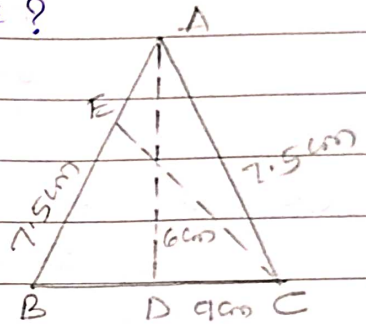 ?
A
E
7.5cm
7.5cm
6cm
B D 9cm C